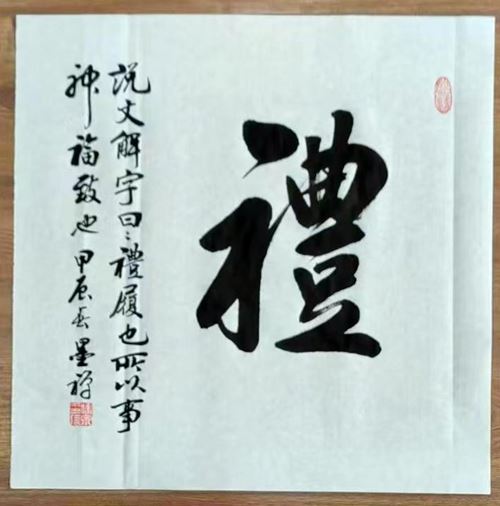 禮
説文解字曰：禮履也所以事
神福致也 甲辰 墨禅